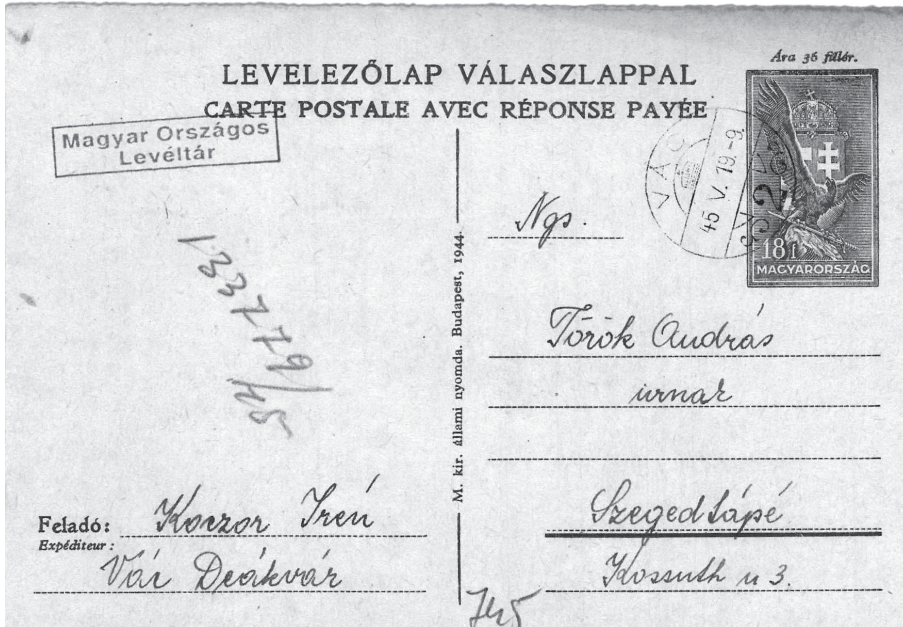 Ára 36 fillér.
LEVELEZŐLAP VÁLASZLAPPAL
CARTE POSTALE AVEC RÉPONSE PAYÉE
Magyar Országos
Levéltár
VÁC
45 V. 19.-9.
18 f
MAGYARORSZÁG
133779/45
M. kir. állami nyomda. Budapest, 1944.
Ngs.
Török András
urnak
Szegedtápé
Kossuth u 3.
Feladó: Koczor Irén
Expéditeur:
Vác Deákvár